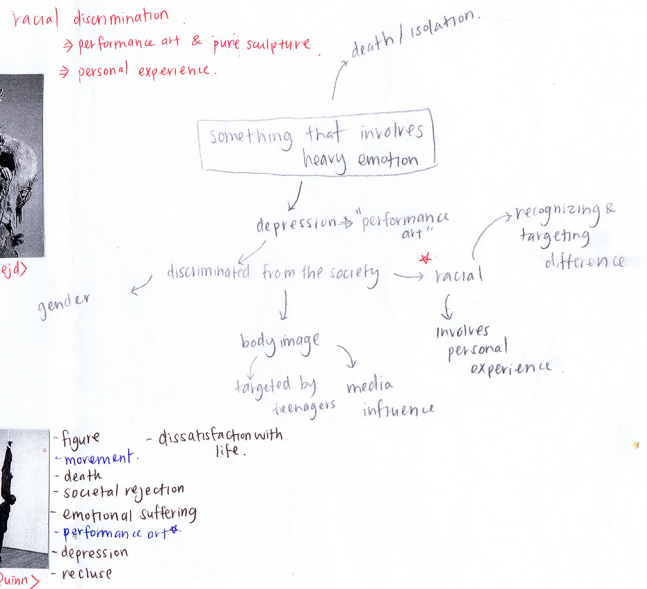 racial discrimination.
⇒ performance art & pure sculpture.
⇒ personal experience.
death / isolation.
something that involves
heavy emotion
depression → "performance
art"
recognizing &
targeting
difference
discriminated from the society → racial
gender
involves
personal
experience.
body image
targeted by
teenagers
media
influence
ejd>
- figure
- dissatisfaction with
life.
- movement.
- death
- societal rejection
- emotional suffering
- performance art*.
- depression
- recluse
Quinn>